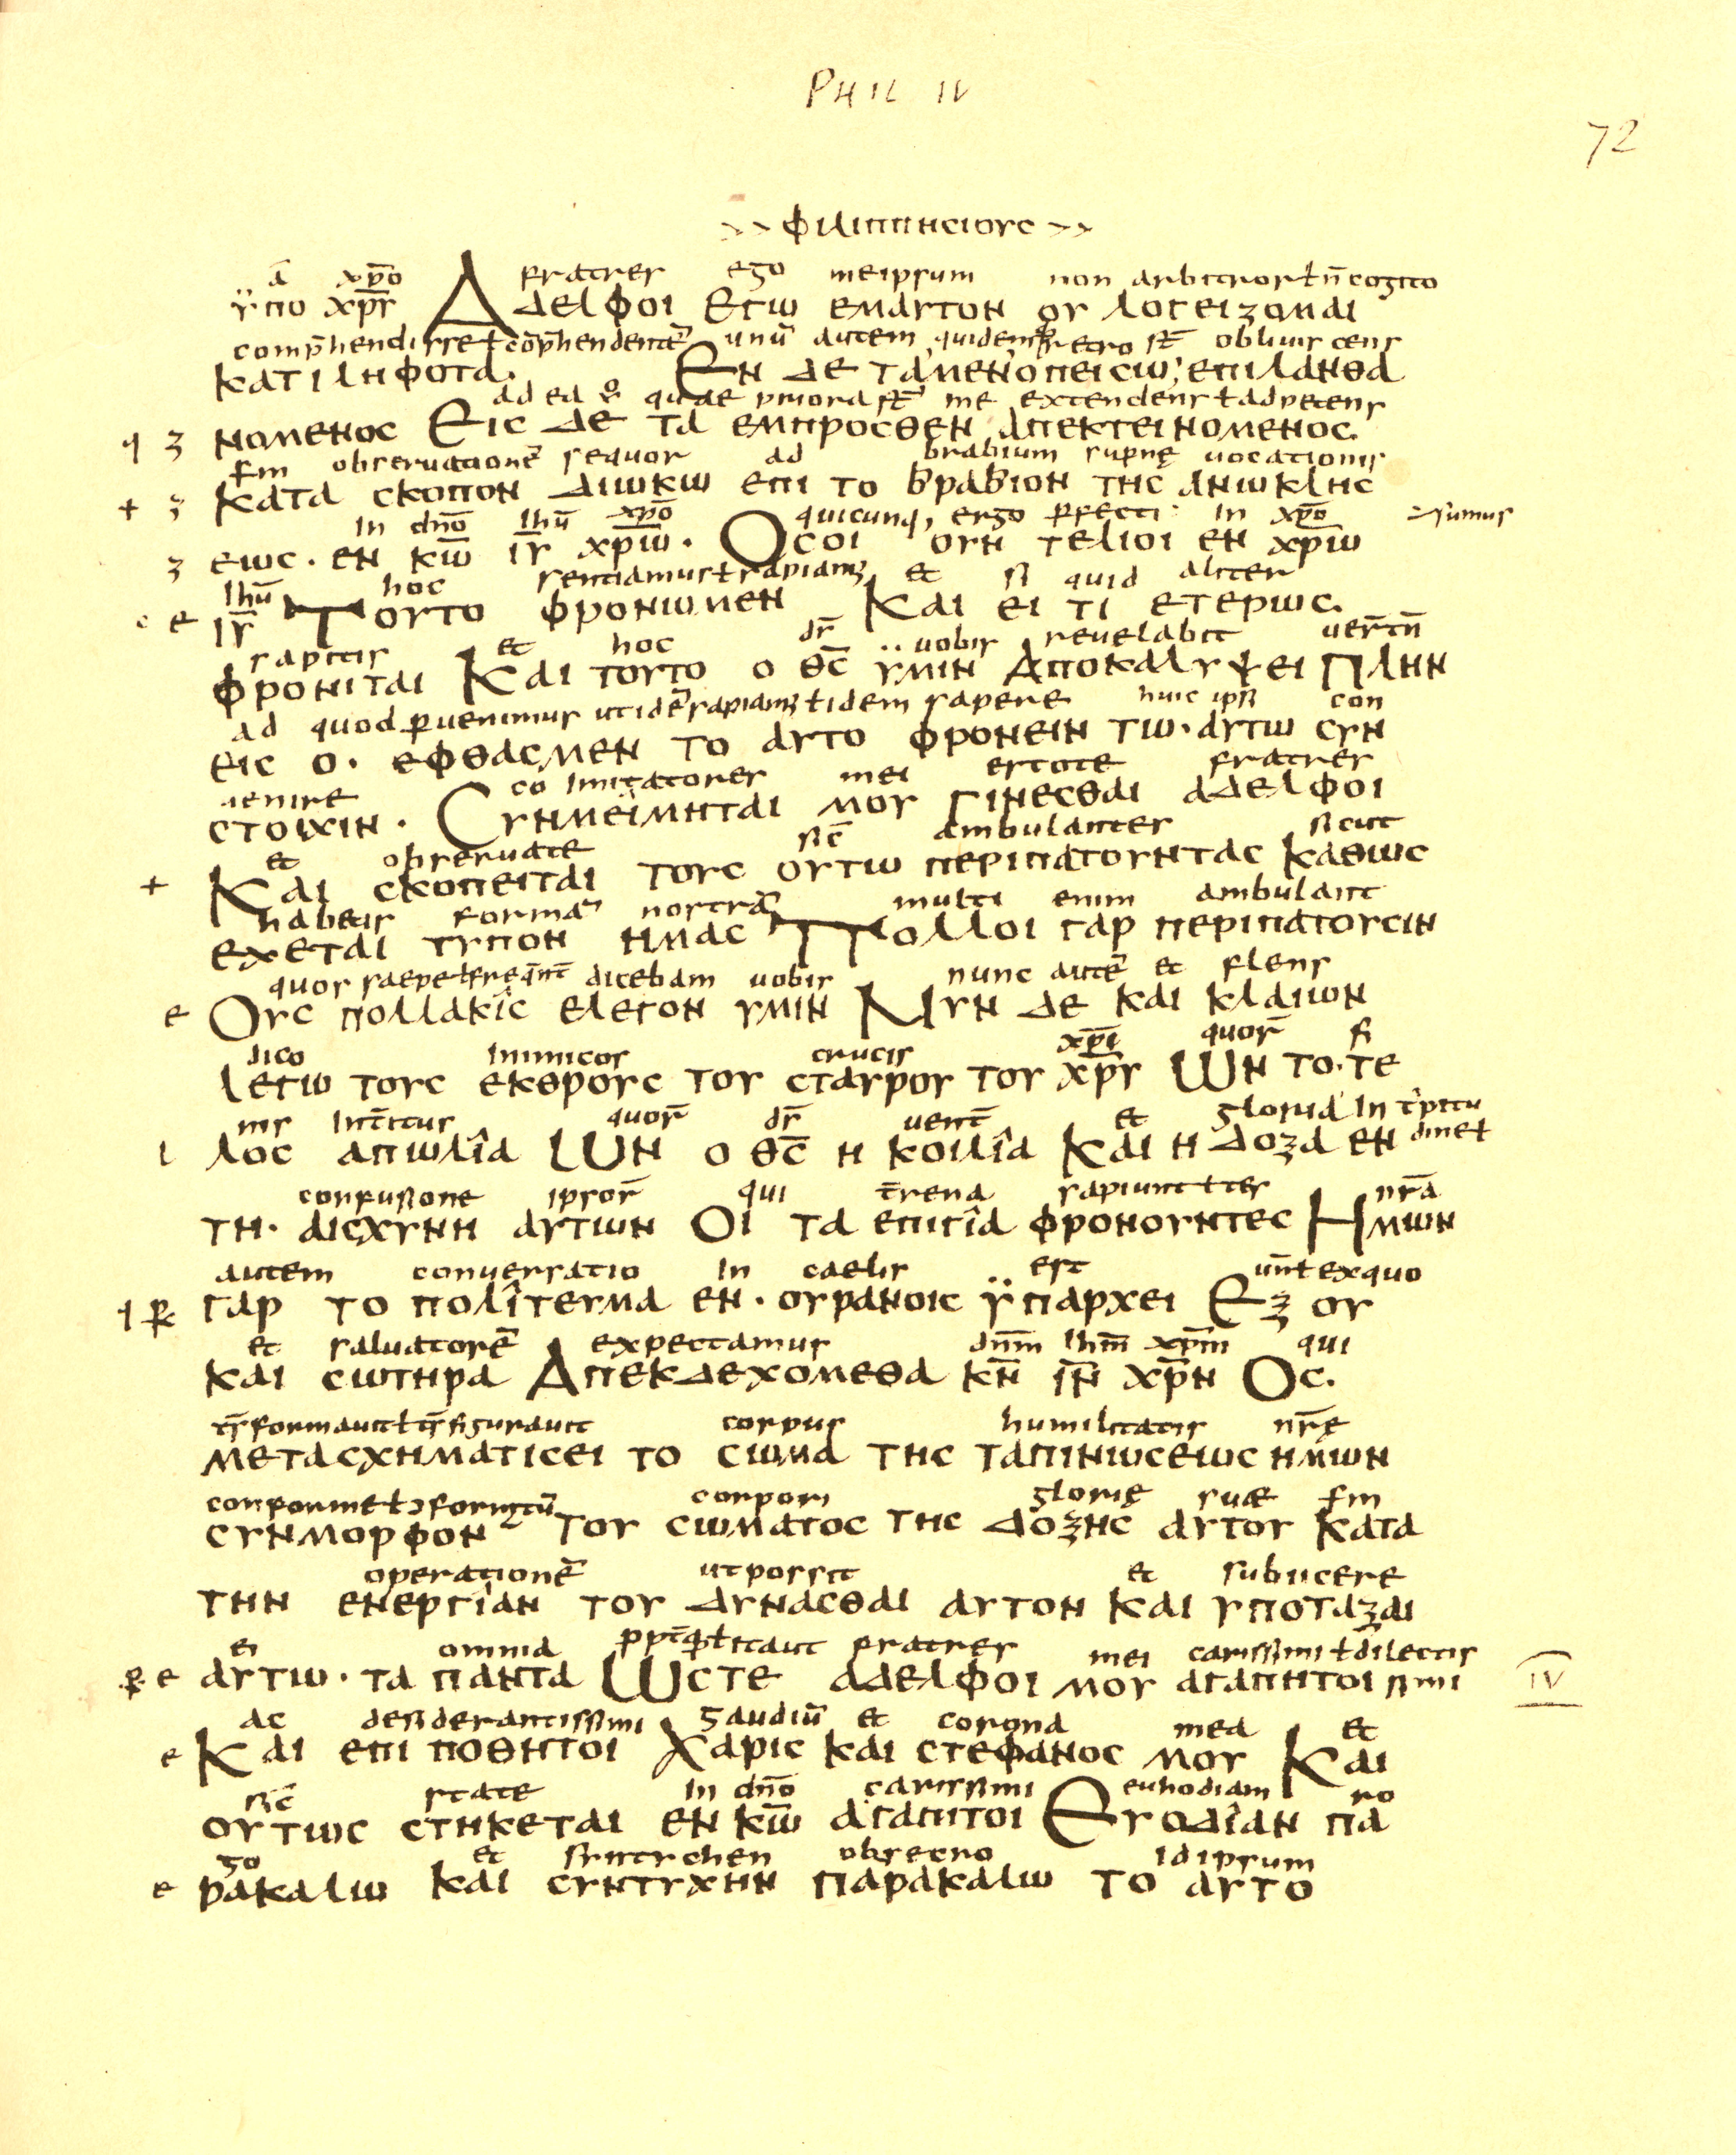 PHIL IV
72
>> ΦΙλΙΠΠΗСΙΟΥС >>
ā xp̄o fratres ego meipsum non arbitror ł n̄ cogito
ϋπο χ̅ρ̅υ Αδελφοι Εγω εμαυτον ου λογειζομαι
comp̄hendisse ł cōp̄hendentē unū autem quidem retro st̄ obliuiscens
κατιληφοτα. Εν δε τα μεν οπεισω, επιλανθα
ad ea quae priora st̄ me extendens ł adpetens
νομενος Εις δε τα εμπροσθεν απεκτεινομενος.
sm̄ obseruationē sequor ad brabium supnę uocationis
κατα σκοπον διωκω επι το βραβιον της ανωκλης
in dn̄o ihū xp̄o quicunq, ergo pfecti in xp̄o sumus
εως. εν κ̅ω̅ ι̅υ̅ χ̅ρ̅ω̅. Οσοι ουν τελιοι εν χ̅ρ̅ω̅
ihū hoc sentiamus ł sapiam; et si quid aliter
ι̅υ̅ Τουτο φρονιωμεν Και ει τι ετεριως.
sapitis et hoc dſ̄ uobis reuelabit uer̄tn̄
φρονιται Και τουτο ο θ̅ς̅ ϋμιν Αποκαλυψει Πλην
ad quod puenimus ut idē sapiam; ł idem sapere huic ipsi con
εις ο. εφθασμεν το αυτο φρονειν τω. αυτω συν
uenire co imitatores mei estote fratres
στοιχιν. Συνμειμηται μου Γινεσθαι αδελφοι
et obseruate sic̄ ambulantes sicut
Και σκοπειται τους ουτω περιπατουντας καθως
habetis formā nostrā multi enim ambulant
εχεται τυπον ημας Πολλοι γαρ περιπατουσιν
quos saepe ł freqn̄t dicebam uobis nunc autē et flens
Ους πολλακις ελεγον υμιν Νυν δε και κλαιων
dico inimicos crucis xp̄i quor̄ fi
λεγω τους εκθρους του σταυρου του χ̅ρ̅υ̅ Ων το. τε
nis int̄itus quor̄ dſ̄ uent̄ et gloria in
λος απωλια Ων ο θ̅ς̅ η κοιλια Και η δοζα εν
confusione ipsor̄ qui t̄rena sapiunt nr̄a
τη. αισχυνη αυτων Οι τα επιγια φρονουντες Ημων
autem conuersatio in caelis est un̄t ex quo
γαρ το πολιτευμα εν. ουρανοις ϋπαρχει Εζ ου
et saluatorē expectamus dn̄m ihm̄ xpm̄ qui
και σωτηρα Απεκδεχομεθα κ̅ν̅ ι̅ν̅ χ̅ρ̅ν̅ Ος.
tr̄formauit ł tr̄figurauit corpus humilitatis nr̄ę
μετασχηματισει το σωμα της ταπινωσεως ημων
corpori glorię suae sm̄
συνμορφον του σωματος της δοζης αυτου κατα
operationē ut possit et subiicere
την ενεργιαν του δυνασθαι αυτον και υποταζαι
ei omnia fratres mei carissimi ł dilectis
αυτω. τα παντα Ωστε αδελφοι μου αγαπητοι simi
IV
ac desiderantissimi gaudiū et corona mea et
Και επι ποθητοι Χαρις και στεφανος μου Και
sic̄ state in dn̄o carissimi euhodiam ro
ουτως στηκεται εν κ̅ω̅ αγαπιτοι Ευοδιαν πα
go et sintichen obsecro id ipsum
ρακαλω και συντυχην παρακαλω το αυτο